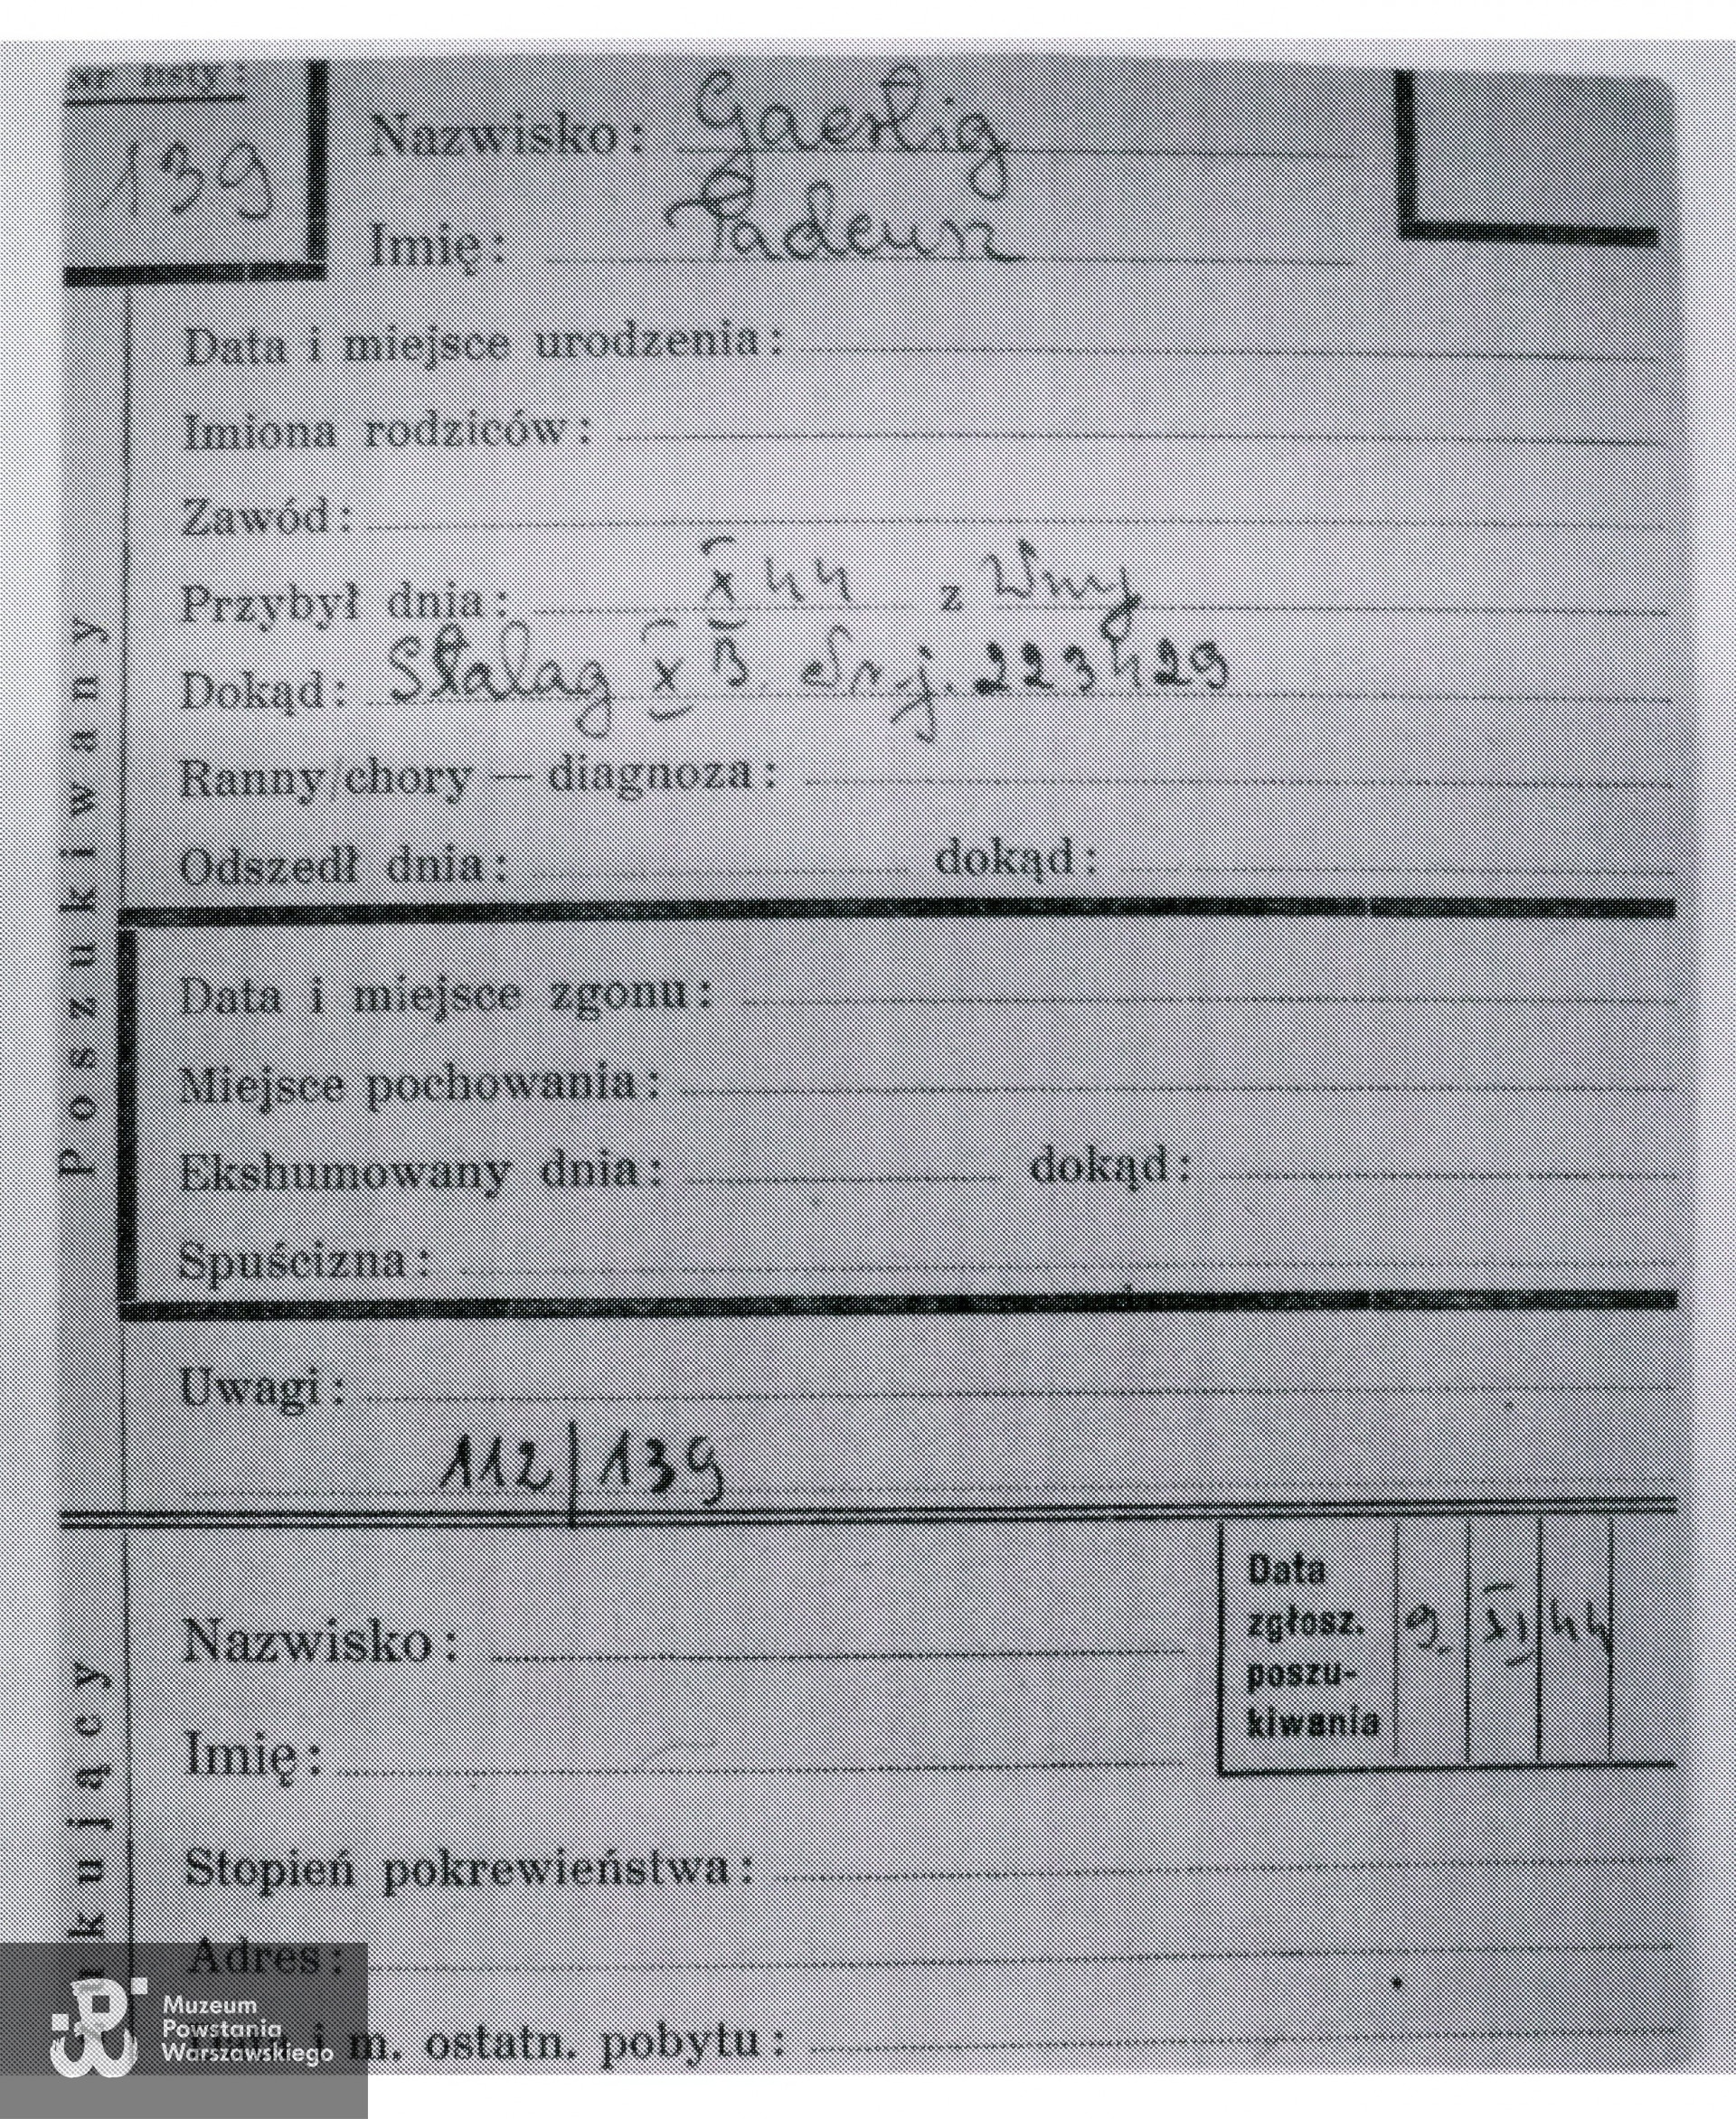 nr listy:
139
Nazwisko: Gaertig
Imię: Tadeusz
Data i miejsce urodzenia:
Imiona rodziców:
Zawód:
Przybył dnia: X 44 z Wwy
Dokąd: Stalag X B Nr j. 223429
Ranny/chory — diagnoza:
Odszedł dnia: dokąd:
Data i miejsce zgonu:
Miejsce pochowania:
Ekshumowany dnia: dokąd:
Spuścizna:
Uwagi:
112/139
Poszukiwany
Nazwisko:
Imię:
Data
zgłosz.
poszu-
kiwania
9. XI 44
Stopień pokrewieństwa:
Adres:
i m. ostatn. pobytu:
ukujący
Muzeum
Powstania
Warszawskiego